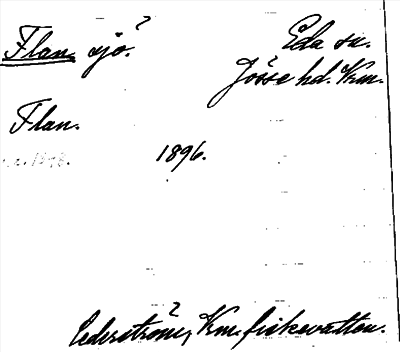 Flan. sjö.
Eda sn.
Jösse hd. Krm.
Flan.
1896.
Cederström, Krm. fiskevatten.